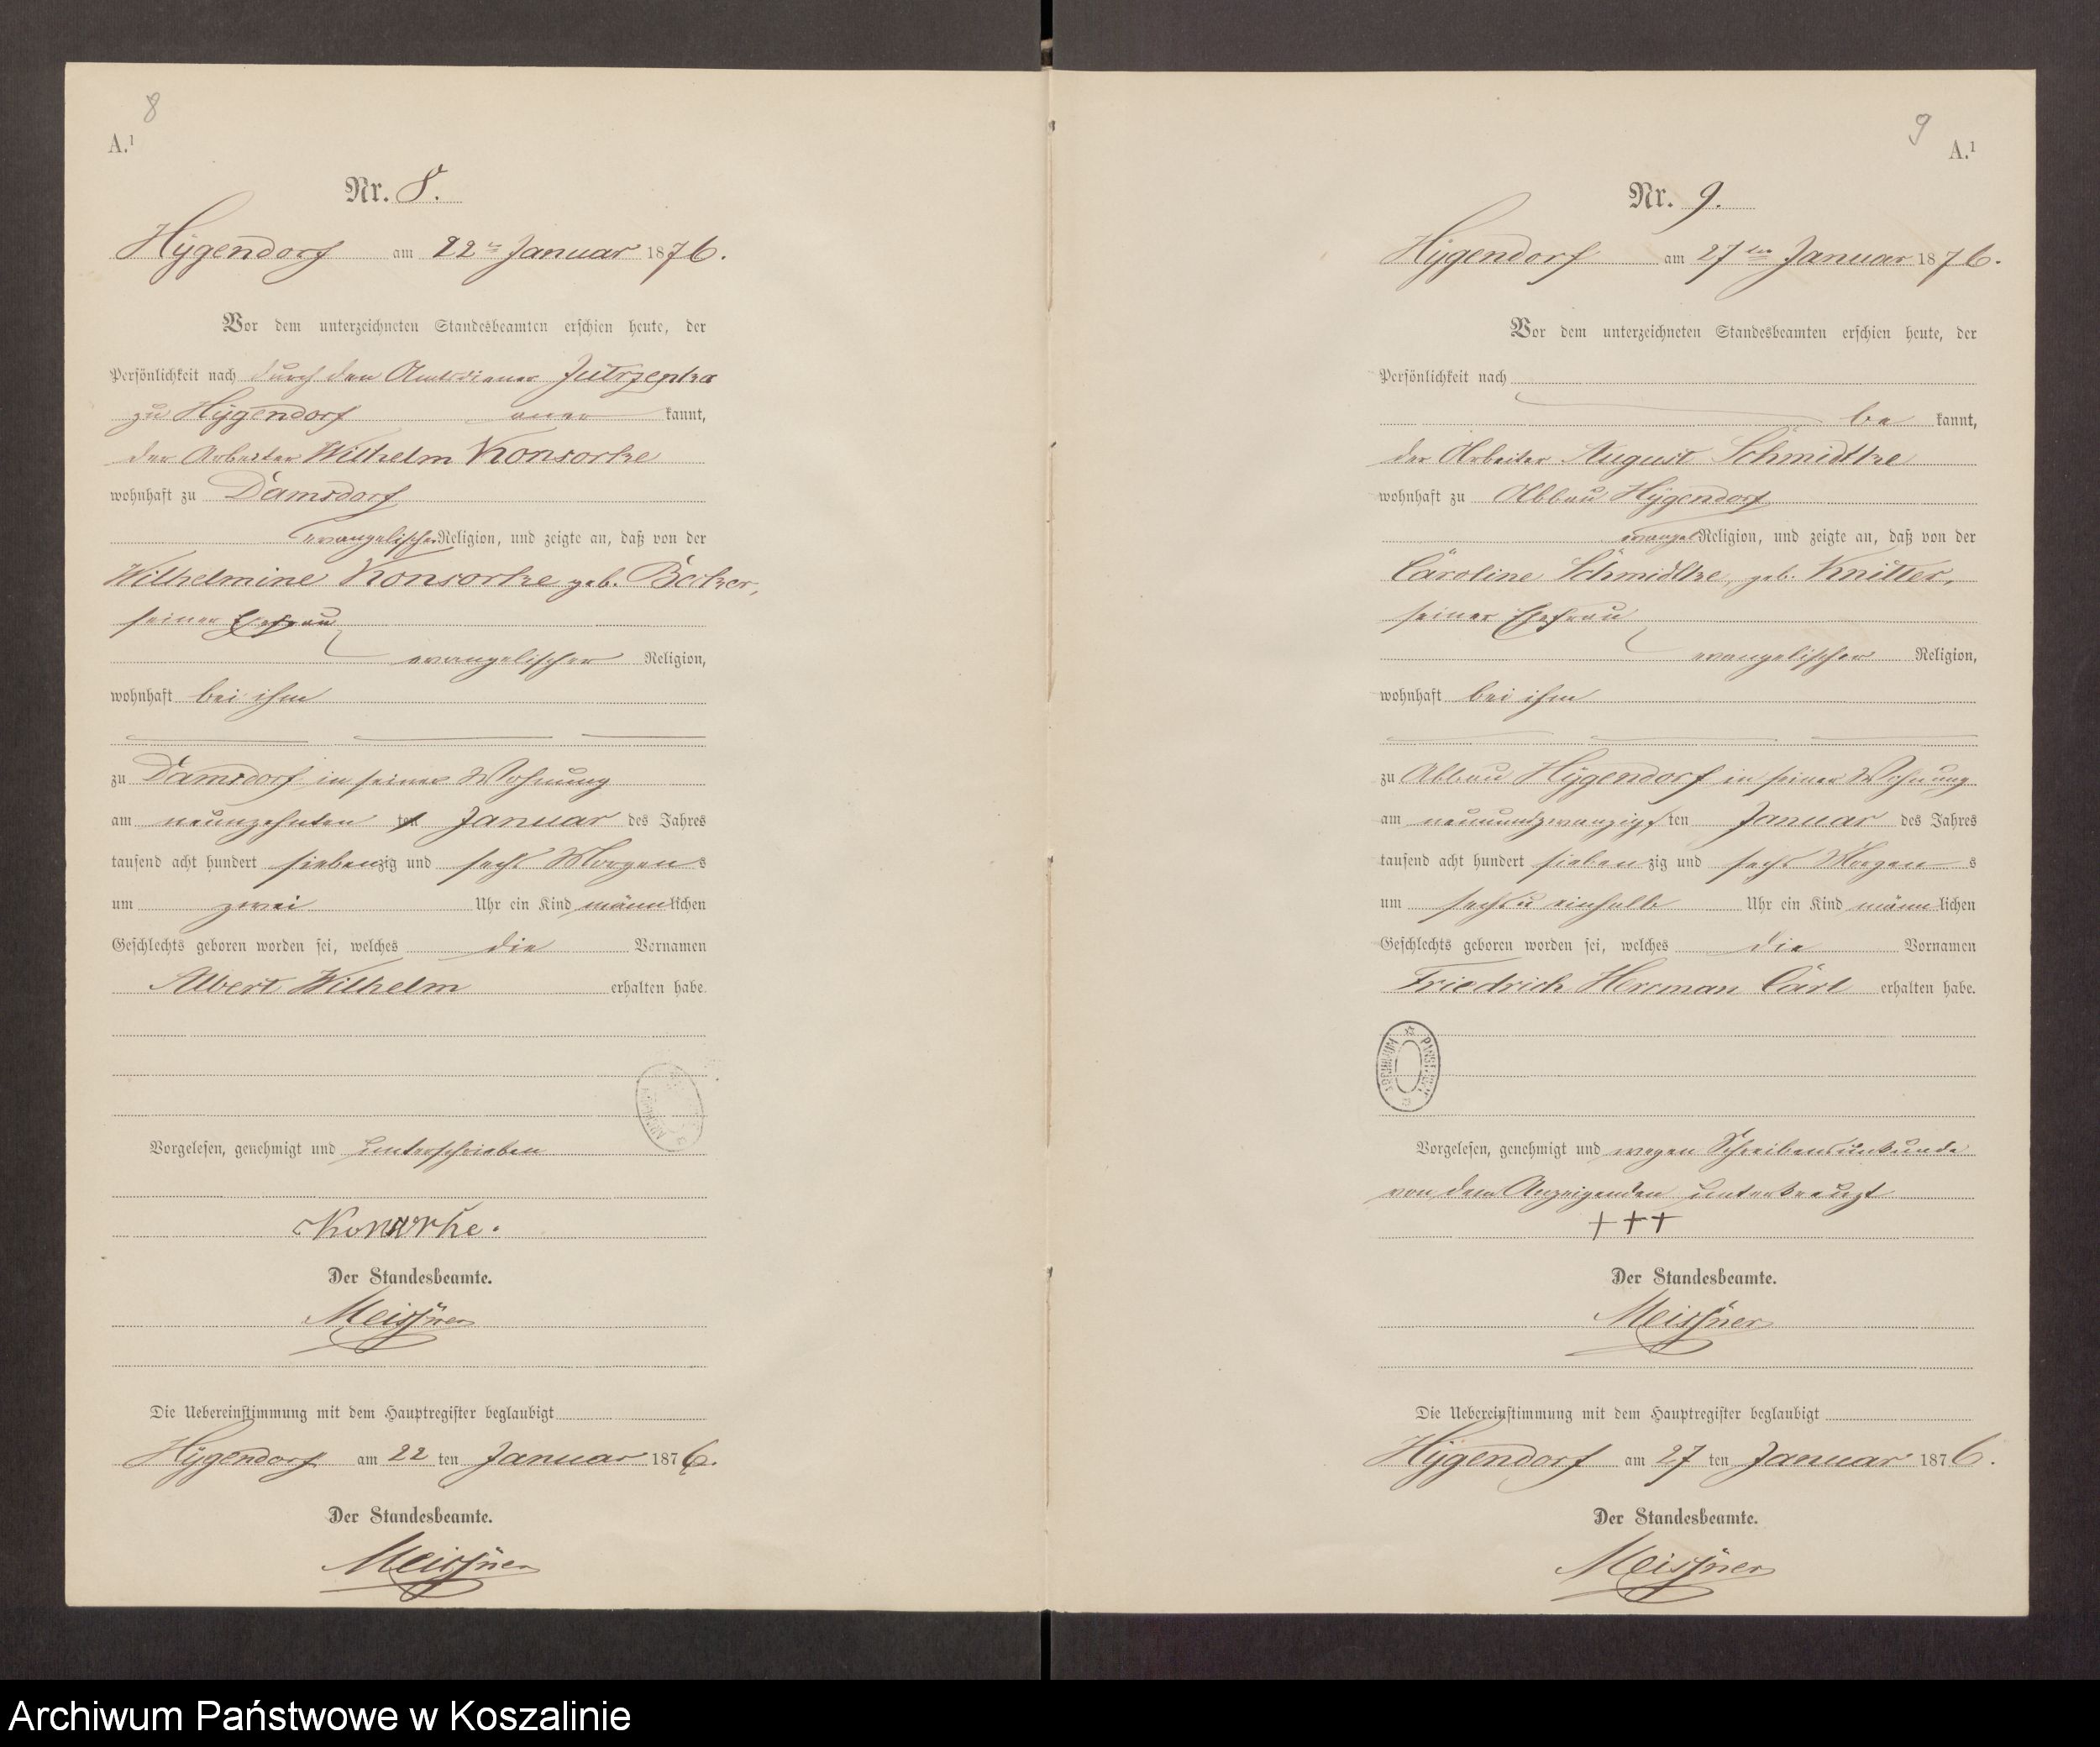 8
A.¹
Nr. 8.
Hygendorf am 22ten Januar 1876.
Vor dem unterzeichneten Standesbeamten erschien heute, der
Persönlichkeit nach durch den Amtsdiener Jutrzenka
zu Hygendorf aner kannt,
der Arbeiter Wilhelm Konsorke
wohnhaft zu Damsdorf
evangelischer Religion, und zeigte an, daß von der
Wilhelmine Konsorke geb. Becker,
seiner Ehefrau
evangelischer Religion,
wohnhaft bei ihm
zu Damsdorf in seiner Wohnung
am neunzehnten ten Januar des Jahres
tausend acht hundert siebenzig und sechs Morgens
um zwei Uhr ein Kind männlichen
Geschlechts geboren worden sei, welches die Vornamen
Albert Wilhelm erhalten habe.
Vorgelesen, genehmigt und unterschrieben
Konsorke.
Der Standesbeamte.
Meissner
Die Uebereinstimmung mit dem Hauptregister beglaubigt
Hygendorf am 22 ten Januar 1876.
Der Standesbeamte.
Meissner
9
A.¹
Nr. 9.
Hygendorf am 27ten Januar 1876.
Vor dem unterzeichneten Standesbeamten erschien heute, der
Persönlichkeit nach
be kannt,
der Arbeiter August Schmidtke
wohnhaft zu Abbau Hygendorf
evangel Religion, und zeigte an, daß von der
Caroline Schmidtke, geb. Knitter,
seiner Ehefrau
evangelischer Religion,
wohnhaft bei ihm
zu Abbau Hygendorf in seiner Wohnung
am neuundzwanzigsten Januar des Jahres
tausend acht hundert siebenzig und sechs Morgens
um sechs u einhalb Uhr ein Kind männlichen
Geschlechts geboren worden sei, welches die Vornamen
Friedrich Herrman Carl erhalten habe.
ARCHIWUM PAŃSTWOWE
Vorgelesen, genehmigt und wegen Schreibensunkunde
von dem Anzeigenden unterkreuzt
+++
Der Standesbeamte.
Meissner
Die Uebereinstimmung mit dem Hauptregister beglaubigt
Hygendorf am 27 ten Januar 1876.
Der Standesbeamte.
Meissner
Archiwum Państwowe w Koszalinie